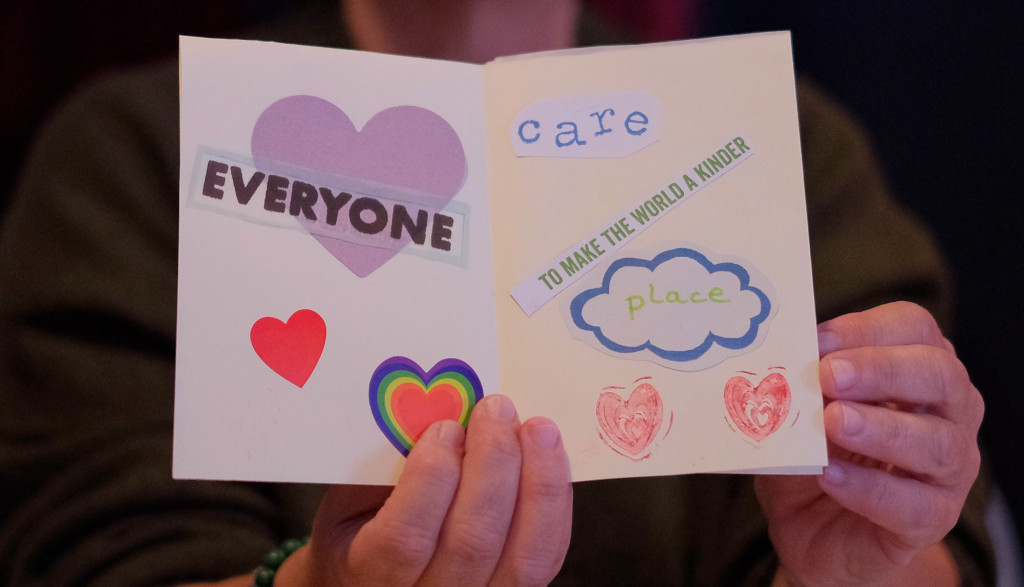 EVERYONE
care
TO MAKE THE WORLD A KINDER
place